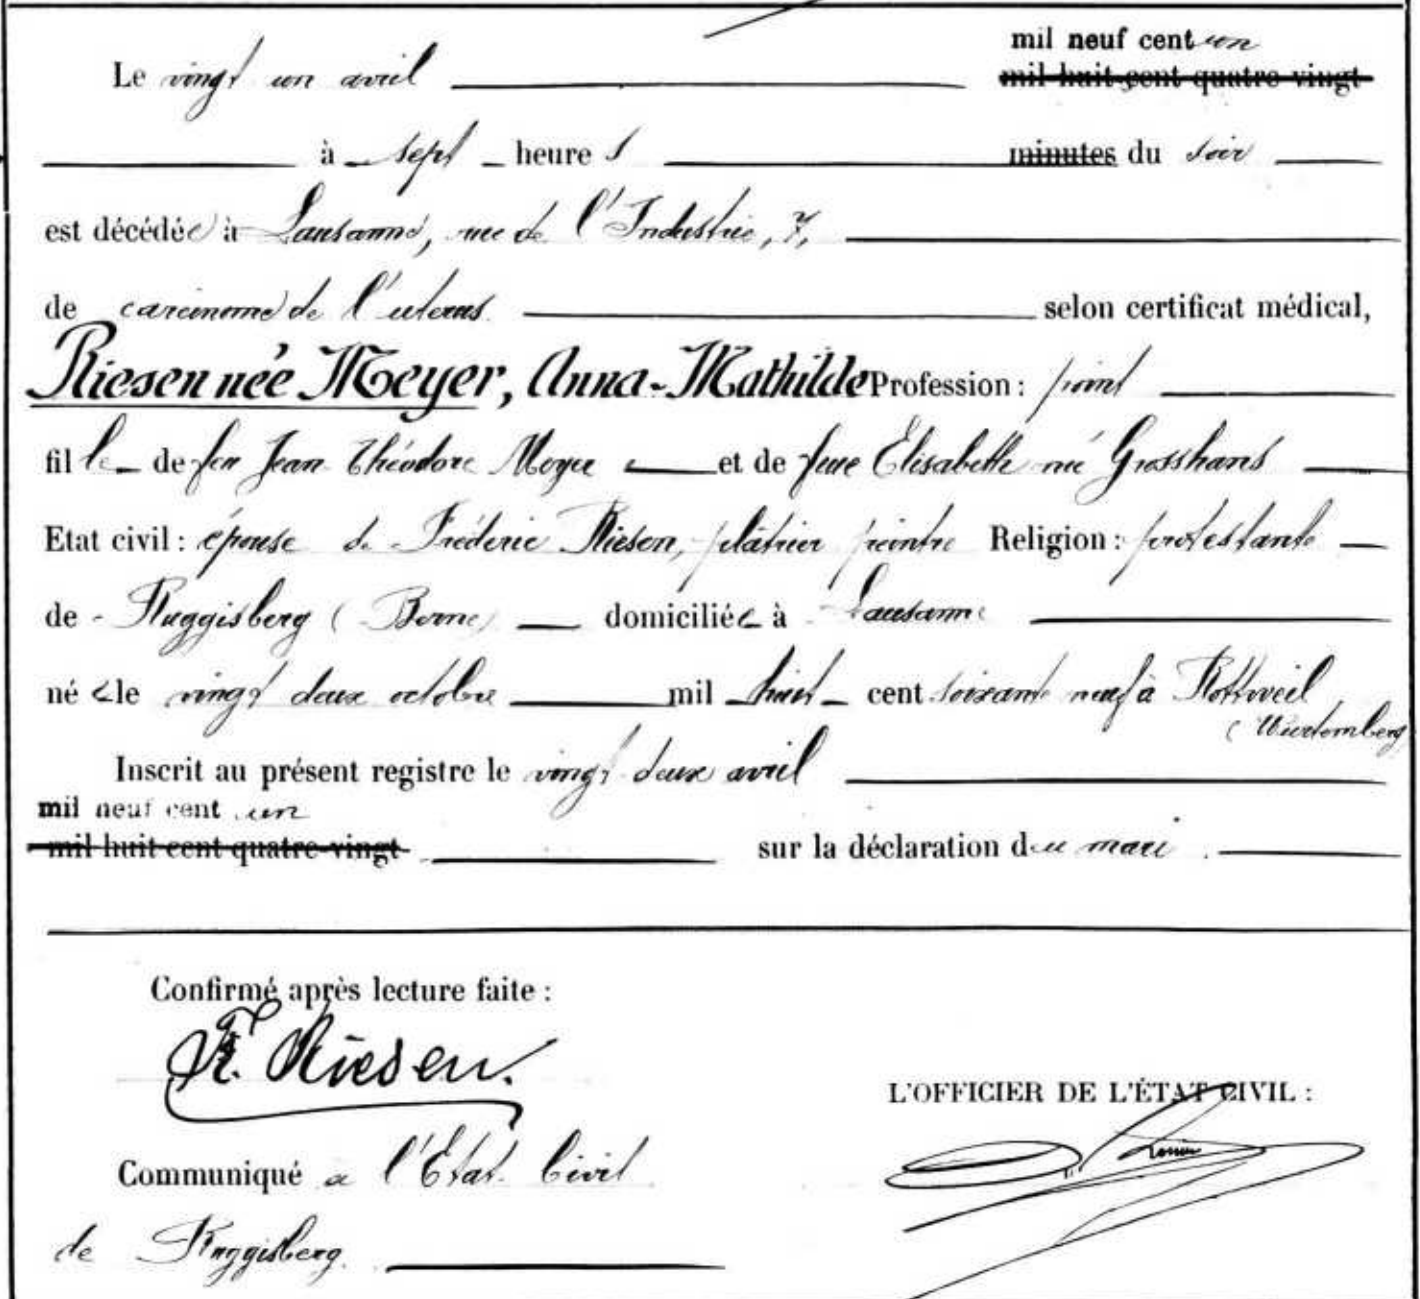 mil neuf cent un
Le vingt un avril mil huit cent quatre-vingt
à sept heures minutes du soir
est décédée à Lausanne, rue de l'Industrie, 7,
de carcinome de l'uterus. selon certificat médical,
Riesen née Meyer, Anna-Mathilde Profession : point
fille de feu Jean Théodore Meyer et de feue Elisabeth née Grosshans
Etat civil : épouse de Frédéric Riesen, plâtrier peintre Religion : protestante
de Ruggisberg (Berne) domiciliée à Lausanne
née le vingt deux octobre mil huit cent soixante neuf à Rottweil
(Wurtemberg
Inscrit au présent registre le vingt deux avril
mil neuf cent un
mil huit cent quatre-vingt sur la déclaration du mari.
Confirmé après lecture faite :
F. Riesen.
L'OFFICIER DE L'ÉTAT CIVIL :
Communiqué à l'Etat Civil
de Ruggisberg.